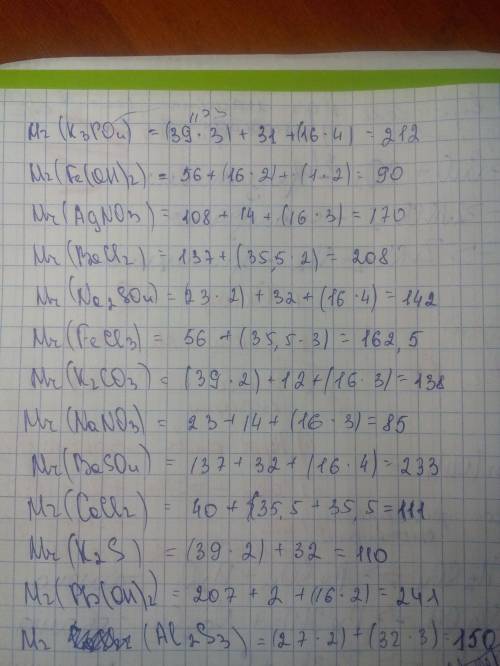 Mr (K₃PO₄) = (39·3) + 31 + (16·4) = 212
Mr (Fe(OH)₂) = 56 + (16·2) + (1·2) = 90
Mr (AgNO₃) = 108 + 14 + (16·3) = 170
Mr (BaCl₂) = 137 + (35,5·2) = 208
Mr (Na₂SO₄) = (23·2) + 32 + (16·4) = 142
Mr (FeCl₃) = 56 + (35,5·3) = 162,5
Mr (K₂CO₃) = (39·2) + 12 + (16·3) = 138
Mr (NaNO₃) = 23 + 14 + (16·3) = 85
Mr (BaSO₄) = 137 + 32 + (16·4) = 233
Mr (CaCl₂) = 40 + (35,5 + 35,5 = 111
Mr (K₂S) = (39·2) + 32 = 110
Mr (Pb(OH)₂) = 207 + 2 + (16·2) = 241
Mr (Al₂S₃) = (27·2) + (32·3) = 150